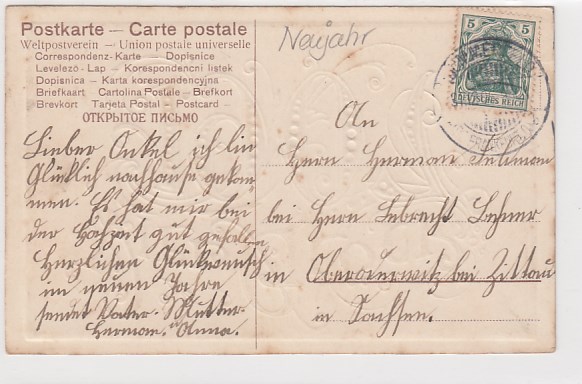 Postkarte — Carte postale
Weltpostverein — Union postale universelle
Correspondenz-Karte — Dopisnice
Levelező-Lap — Korespondencni listek
Dopisnica — Karta korespondencyjna
Briefkaart — Cartolina Postale — Brefkort
Brevkort — Tarjeta Postal — Postcard —
ОТКРЫТОЕ ПИСЬМО
Neujahr
5 5
DEUTSCHES REICH
Lieber Onkel ich bin
Glücklich nachhause gekom
men. Es hat mir bei
der Hochzeit gut gefallen
Herzlichen Glückwunsch
im neuen Jahre
sendet Vater. Mutter
Herman. u Anna.
An
Herrn Herman
bei Herrn Lebrecht
in Oberoderwitz bei Zittau
in Sachsen.